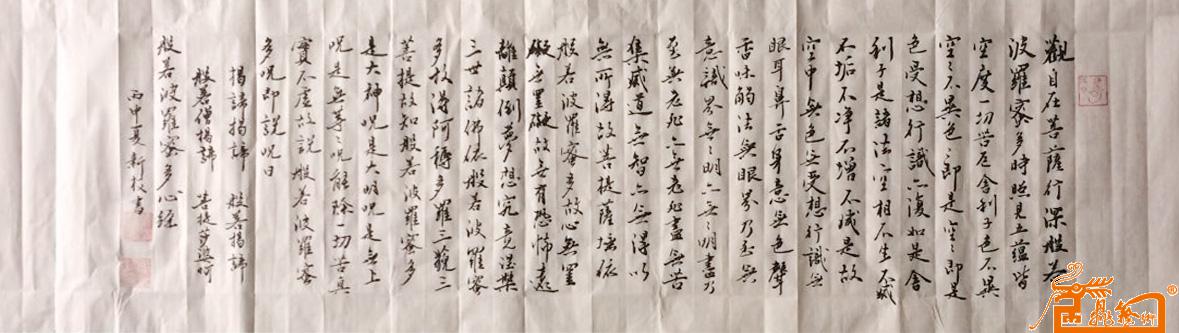 觀自在菩薩行深般若
波羅蜜多時照見五蘊皆
空度一切苦厄舍利子色不異
空空不異色色即是空空即是
色受想行識亦復如是舍
利子是諸法空相不生不滅
不垢不净不增不减是故
空中無色無受想行識無
眼耳鼻舌身意無色聲
香味觸法無眼界乃至無
意識界無無明亦無無明盡乃
至無老死亦無老死盡無苦
集滅道無智亦無得以
無所得故菩提薩埵依
般若波羅蜜多故心無罣
礙無罣礙故無有恐怖遠
離顛倒夢想究竟涅槃
三世諸佛依般若波羅蜜
多故得阿耨多羅三藐三
菩提故知般若波羅蜜多
是大神呪是大明呪是無上
呪是無等等呪能除一切苦真
實不虛故説般若波羅蜜
多呪即説呪曰
揭諦揭諦 般若揭諦
般若僧揭諦 菩提莎婆呵
般若波羅蜜多心經
丙申夏新校書